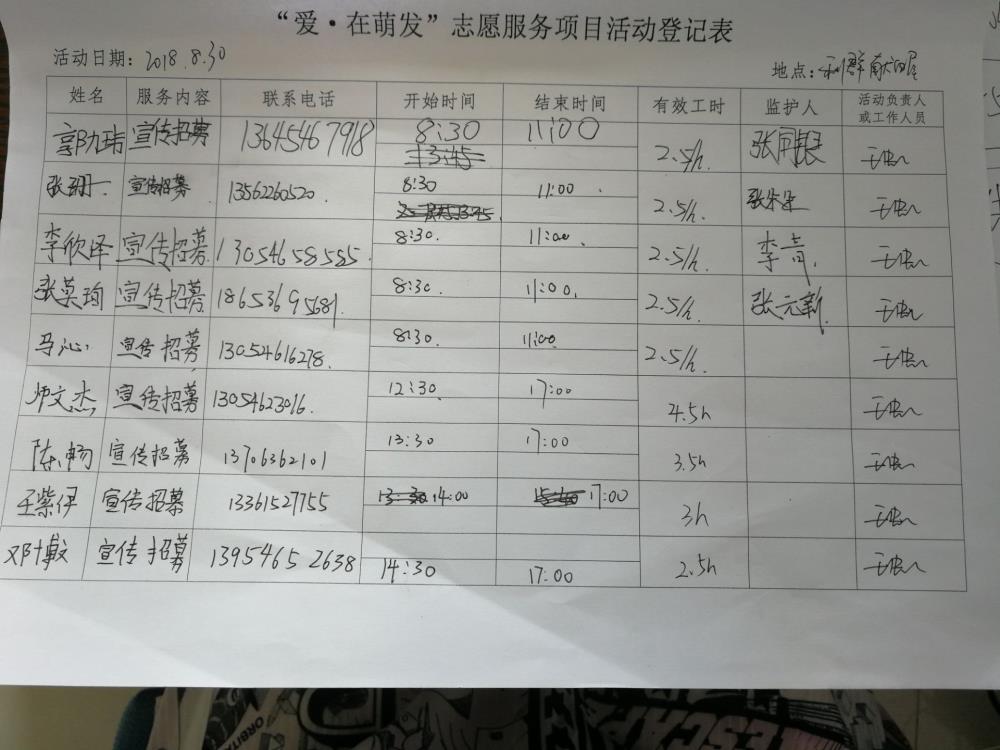 “爱·在萌发”志愿服务项目活动登记表
活动日期：2018.8.30 地点：利群献血屋
姓名 服务内容 联系电话 开始时间 结束时间 有效工时 监护人 活动负责人或工作人员
郭九玮 宣传招募 13645467918 8:30 11:00 2.5/h.
张珊 宣传招募 13562260520 8:30 11:00 2.5/h.
李欣泽 宣传招募 13054658585 8:30. 11:00. 2.5/h. 李青
张英珣 宣传招募 18653695681 8:30. 11:00. 2.5/h. 张元新
马沁 宣传招募 130524616278. 8:30. 11:00 2.5/h.
师文杰 宣传招募 13054623016. 12:30 17:00 4.5h
陈畅 宣传招募 13706362101 13:30 17:00 3.5h
王紫伊 宣传招募 13361527755 14:00 17:00 3h
邓博文 宣传招募 13954652638 14:30 17:00 2.5h